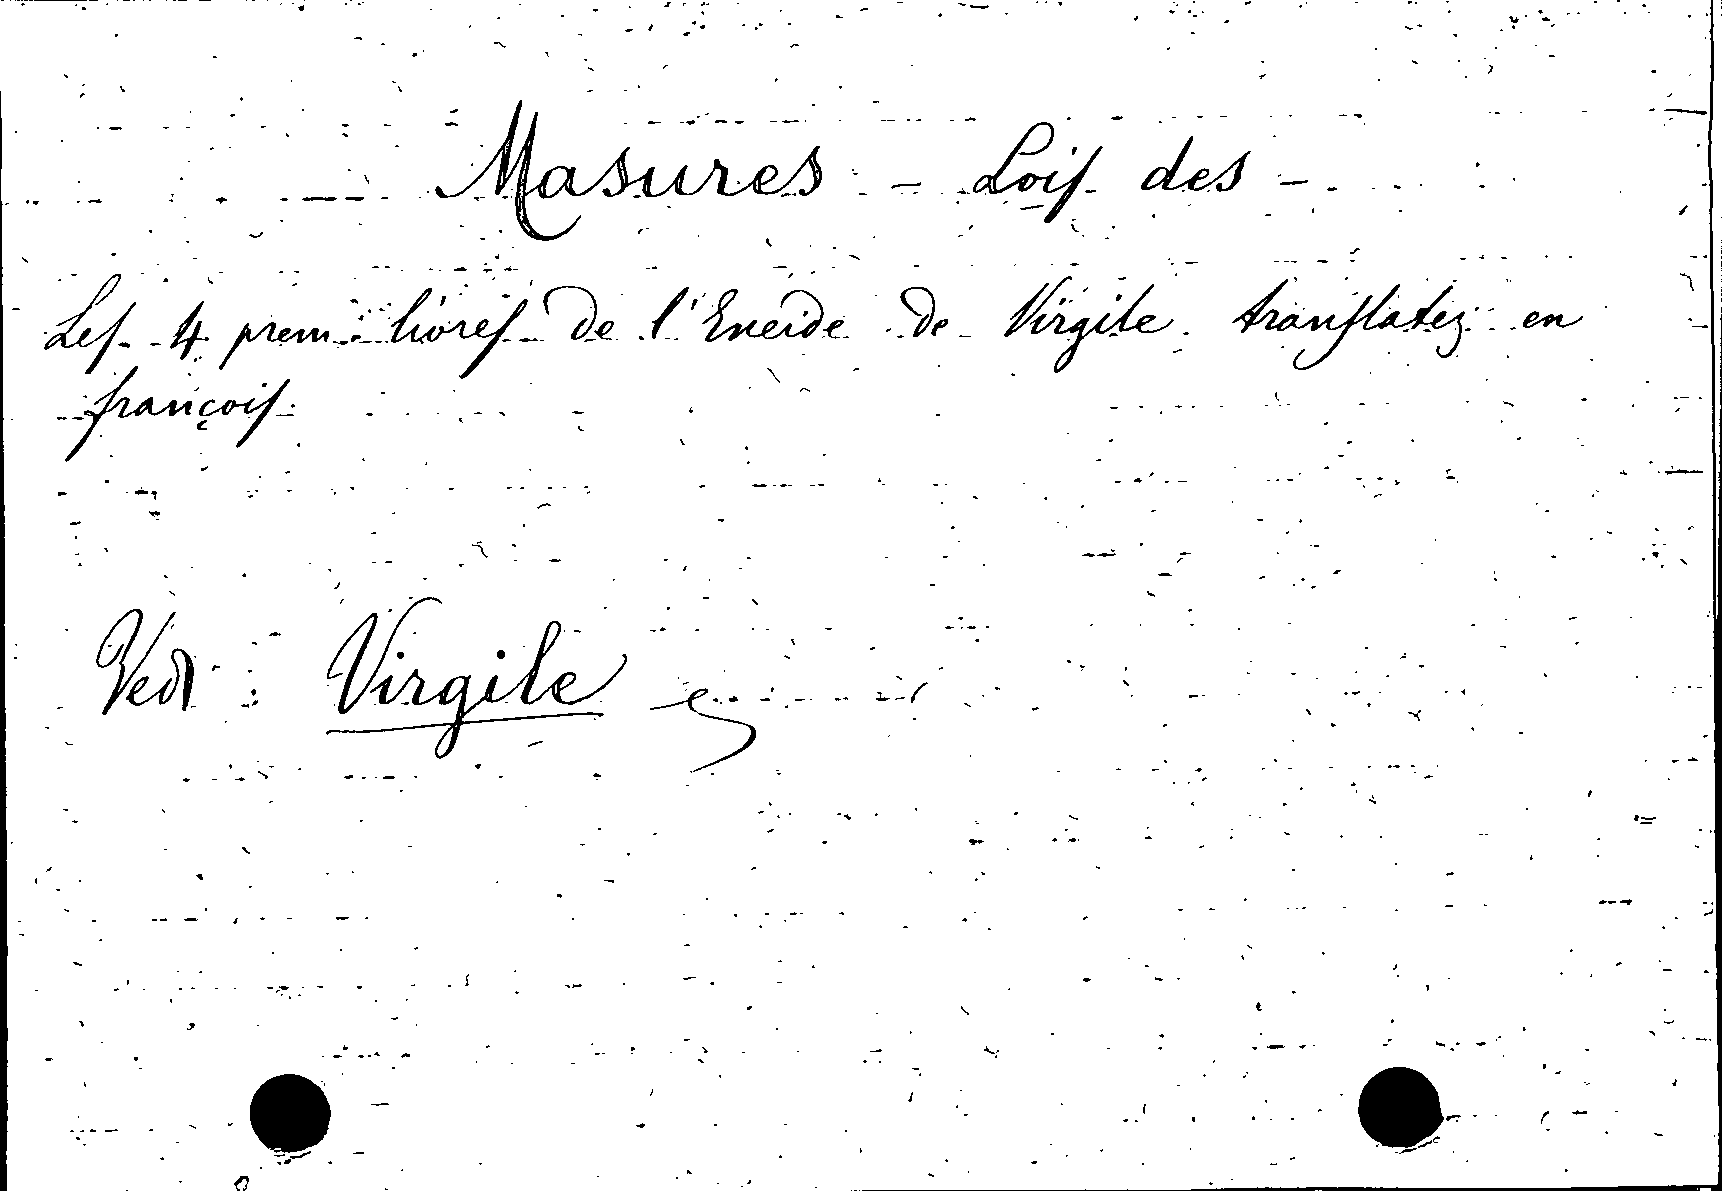 Masures - Loiſ des -
Leſ 4 prem: livreſ de l'Eneide de Virgile tranſlatez en
françoiſ
Vedi: Virgile